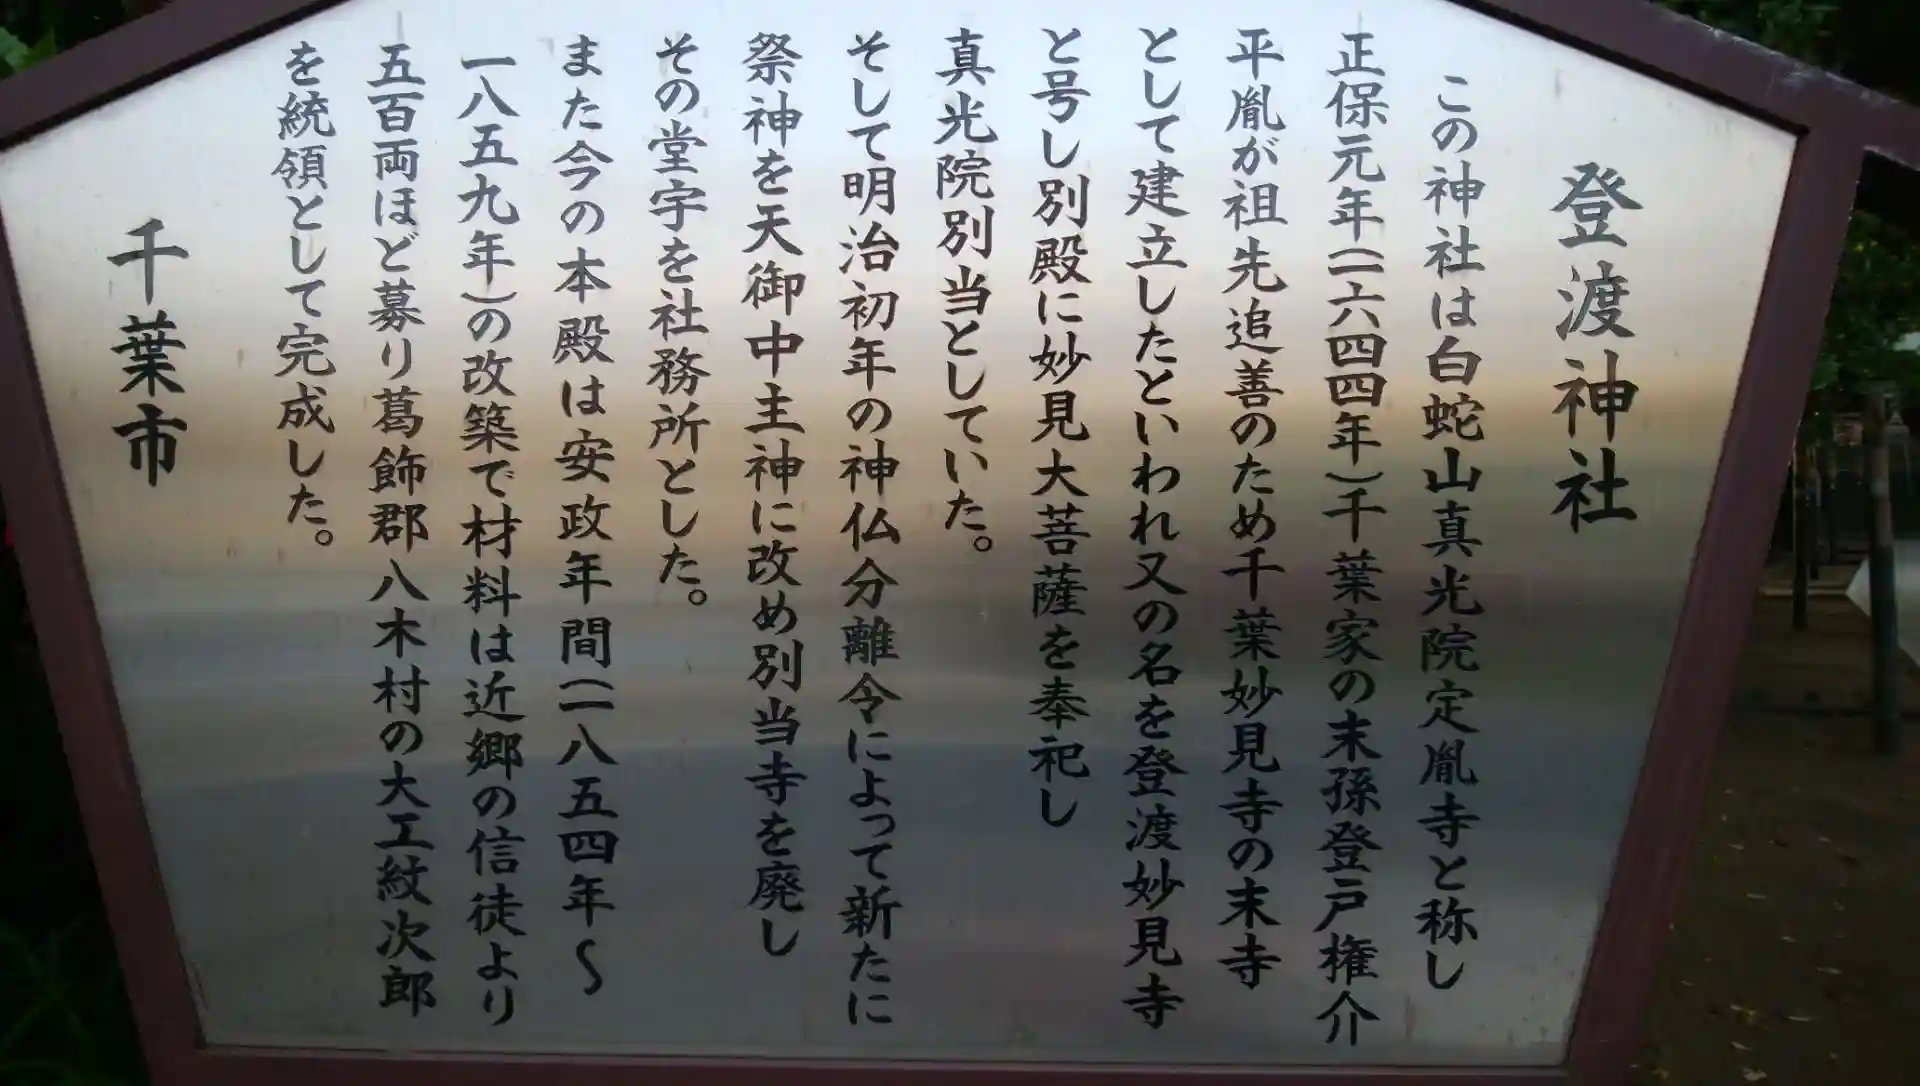 登渡神社
この神社は白蛇山真光院定胤寺と称し
正保元年(一六四四年)千葉家の末孫登戸権介
平胤が祖先追善のため千葉妙見寺の末寺
として建立したといわれ又の名を登渡妙見寺
と号し別殿に妙見大菩薩を奉祀し
真光院別当としていた。
そして明治初年の神仏分離令によって新たに
祭神を天御中主神に改め別当寺を廃し
その堂宇を社務所とした。
また今の本殿は安政年間(一八五四年〜
一八五九年)の改築で材料は近郷の信徒より
五百両ほど募り葛飾郡八木村の大工紋次郎
を統領として完成した。
千葉市